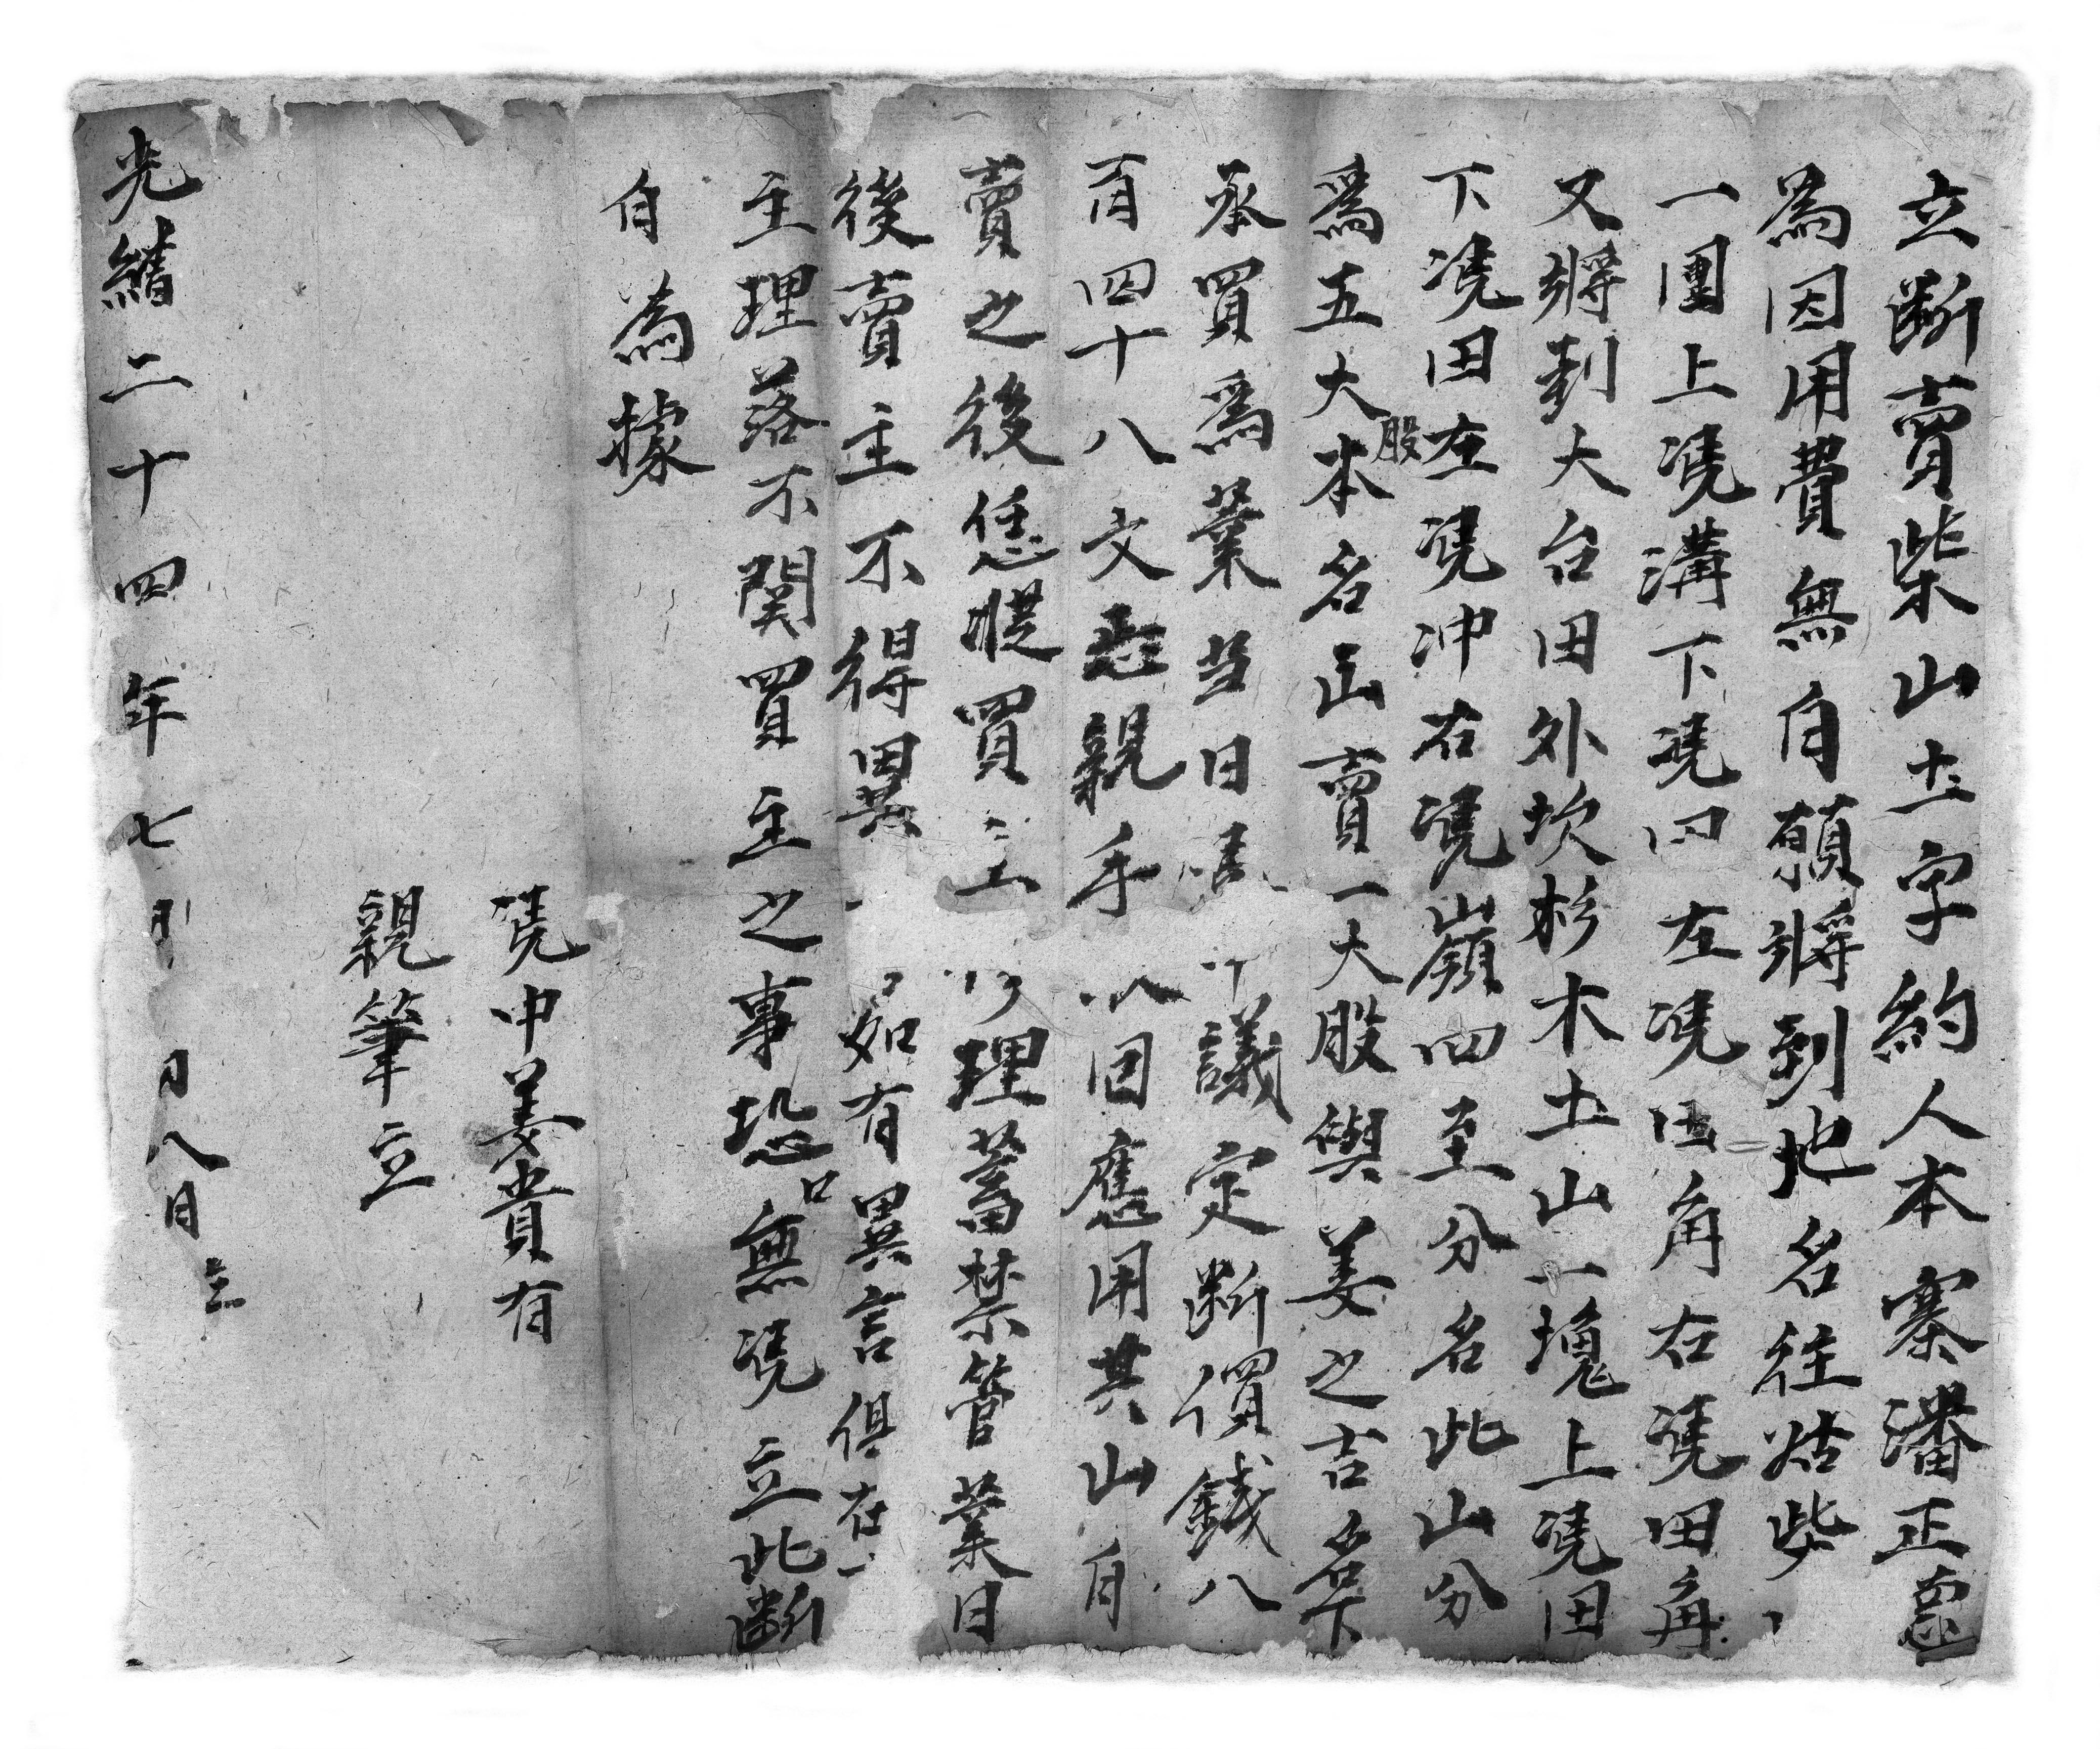 立斷賣柴山土字約人本寨潘正
為因用費無自願將到地名往姑柴
一團上凴溝下凴田左凴田角右凴田角
又將到大台田外坎杉木土山一塊上凴田
下凴田左凴冲右凴嶺四至分名此山分
為五大股本名占賣一大股與姜之吉名下
承買爲業当日議定斷價錢八
百四十八文悉親手回應用其山自
賣之後恁從買主理蓄禁管業日
後賣主不得異如有異言俱在
主理落不関買主之事恐口無凴立此斷
自為據
凴中姜貴有
親筆立
光緒二十四年七月八日立